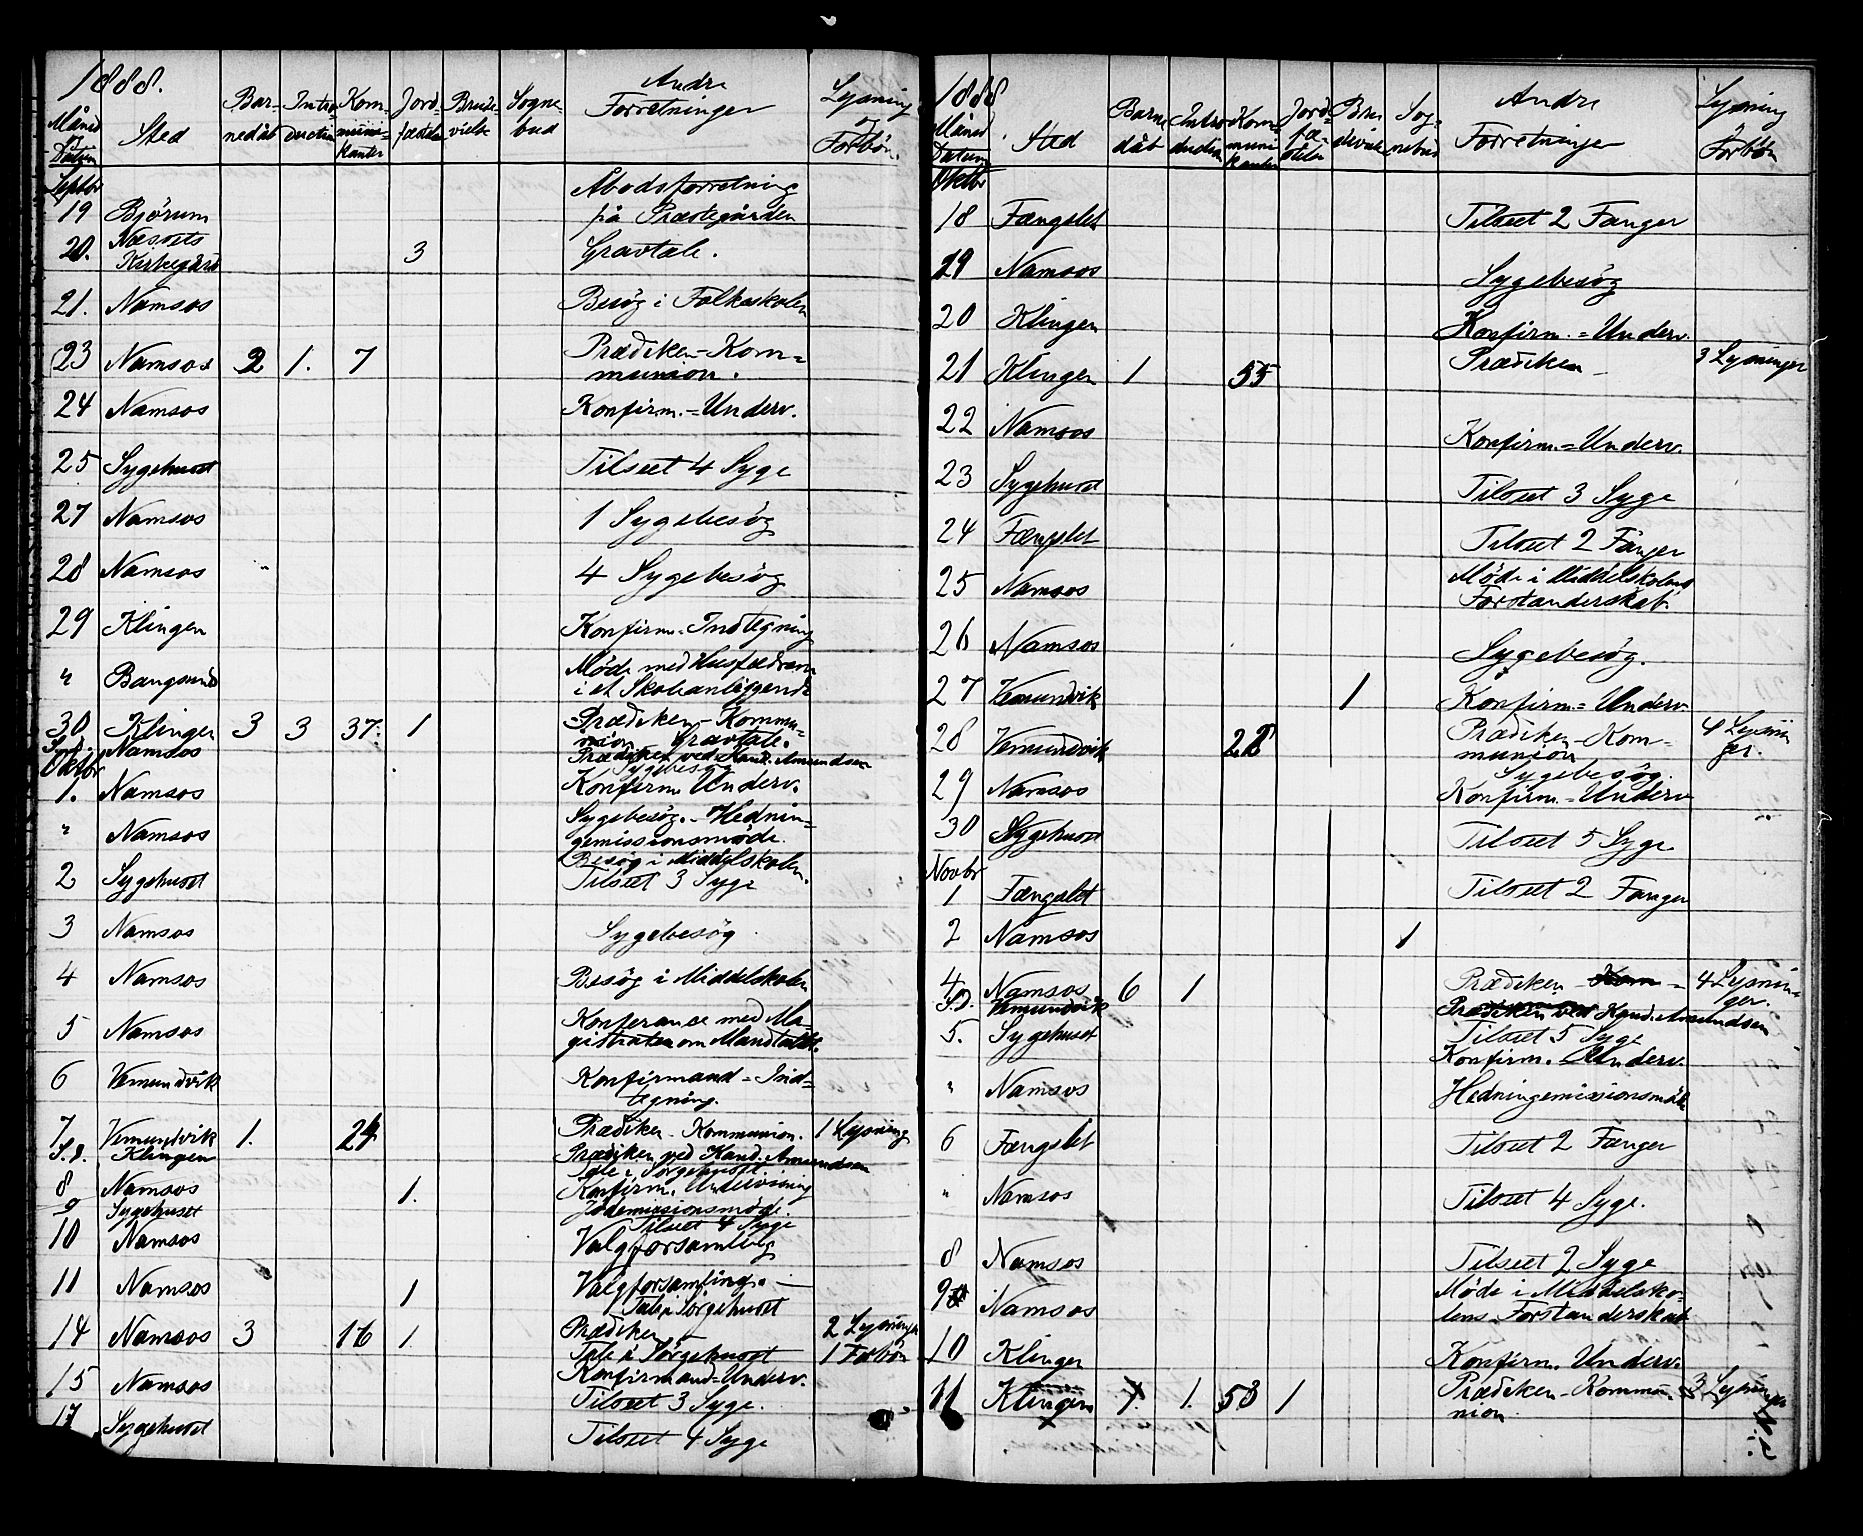 1888.
Måned
Datum
Sted
Bar-
nedåb
Intro-
duction
Kom-
muni-
kanter
Jord-
fæstelse
Brude-
vielse
Sogne-
bud
Andre
Forretninger
Lysning
og
Forbön.
Septbr
Åbodsforretning
19 Bjørum på Præstegården
20. Næsets
Kirkegård 3 Gravtale.
21. Namsos Besög i Folkeskolen
23 Namsos 2 1. 7 Prædiken-Kom-
munion.
24 Namsos Konfirm.-Underv.
25 Sygehuset Tilseet 4 Syge
27 Namsos 1 Sygebesög
28 Namsos 4 Sygebesög
29 Klingen Konfirm.-Indtegning
" Bangsund Möde med Husfædrene
i et Skoleanliggende
30 Klingen 3 3 37. 1 Prædiken-Kommu-
nion. Gravtale.
S.d. Namsos Prædiken ved Kand. Amundsen
Oktbr Sygebesög
1. Namsos Konfirm. Underv.
" Namsos Sygebesög.-Hednin-
gemissionsmöde.
Besög i Middelskolen.
2 Sygehuset Tilseet 3 Syge
3 Namsos Sygebesög
4 Namsos Besög i Middelskolen
5 Namsos Konferance med Ma-
gistraten om Mandtallet.
6 Vemundvik Konfirmand-Ind-
tegning.
7 Vemundvik 1. 24 Prædiken-Kommunion. 1 Lysning
S.d. Klingen Prædiken ved Kand. Amundsen
Tale i Sörgehuset.
8 Namsos 1. Konfirm. Underviisning
Jödemissionsmöde.
9 Sygehuset Tilseet 4 Syge
10 Namsos Valgforsamling
11 Namsos 1 Valgforsamling.-
Tale i Sörgehuset
14 Namsos 3 16 1. Prædiken- 2 Lysninger
Tale i Sörgehuset 1 Forbön
15 Namsos Konfirmand-Underv.
Tilseet 3 Syge.
17 Sygehuset Tilseet 4 Syge
1888
Måned
Datum
Sted
Barne-
dåb
Intro-
duction
Kom-
muni-
kanter
Jord-
fæ-
stelse
Bru-
devielse
Sog-
nebud
Andre
Forretninger
Lysning
og
Forbön
Oktbr
18 Fængslet Tilseet 2 Fanger
19 Namsos Sygebesög
20 Klingen Konfirm.-Underv.
21 Klingen 1 55 Prædiken- 3 Lysninger
22 Namsos Konfirm.-Underv.
23 Sygehuset Tilseet 3 Syge
24 Fængslet Tilseet 2 Fanger
25 Namsos Möde i Middelskolens
Forstanderskab
26 Namsos Sygebesög.
27 Vemundvik 1 Konfirm.-Underv.
28 Vemundvik 28 Prædiken-Kom- 4 Lysnin-
munion ger.
Sygebesög.
29 Namsos Konfirm.-Underv
30 Sygehuset Tilseet 5 Syge
Novbr
1 Fængslet Tilseet 2 Fanger
2 Namsos 1
4 Namsos 6 1 Prædiken-Kom- 4 Lysnin-
ger.
S.d. Vemundvik Prædiken ved Kand. Amundsen
5. Sygehuset Tilseet 5 Syge
Konfirm. Underv.
" Namsos Hedningemissionsmöde
6 Fængslet Tilseet 2 Fanger
" Namsos Tilseet 4 Syge.
8 Namsos Tilseet 2 Syge
9 Namsos Möde i Middelsko-
lens Forstanderskab
10 Klingen Konfirm. Underv.
11 Klingen 1. 53 1 Prædiken-Kommu- 3 Lysninger
nion.